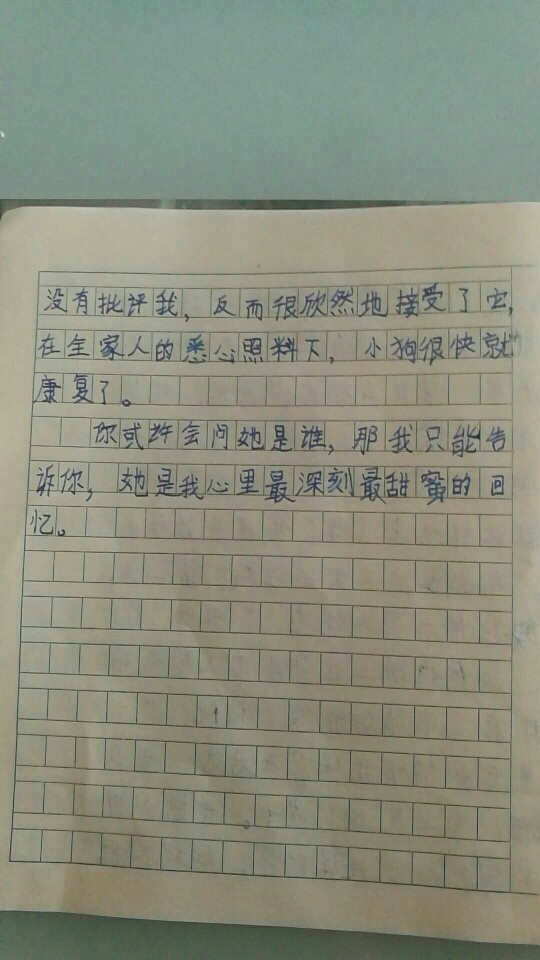 没有批评我，反而很欣然地接受了它，
在全家人的悉心照料下，小狗很快就
康复了。
你或许会问她是谁，那我只能告
诉你，她是我心里最深刻最甜蜜的回
忆。